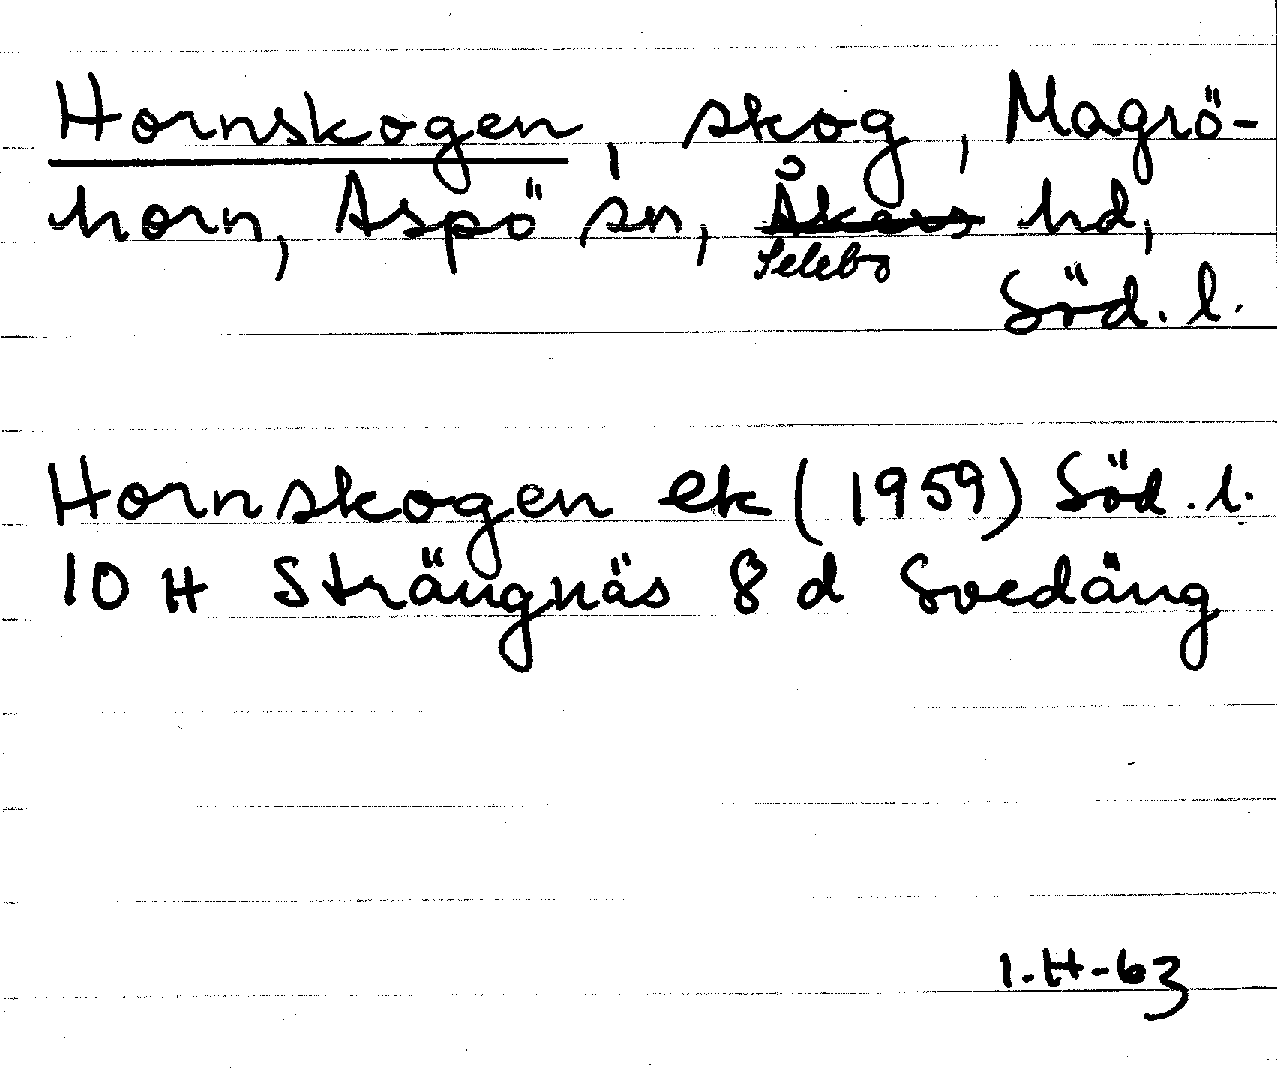 Hornskogen, skog, Magrö-
horn, Aspö sn, Åkers hd,
Selebo
Söd. l.
Hornskogen ek (1959) Söd. l.
10 H Strängnäs 8 d Svedäng
1.H-63